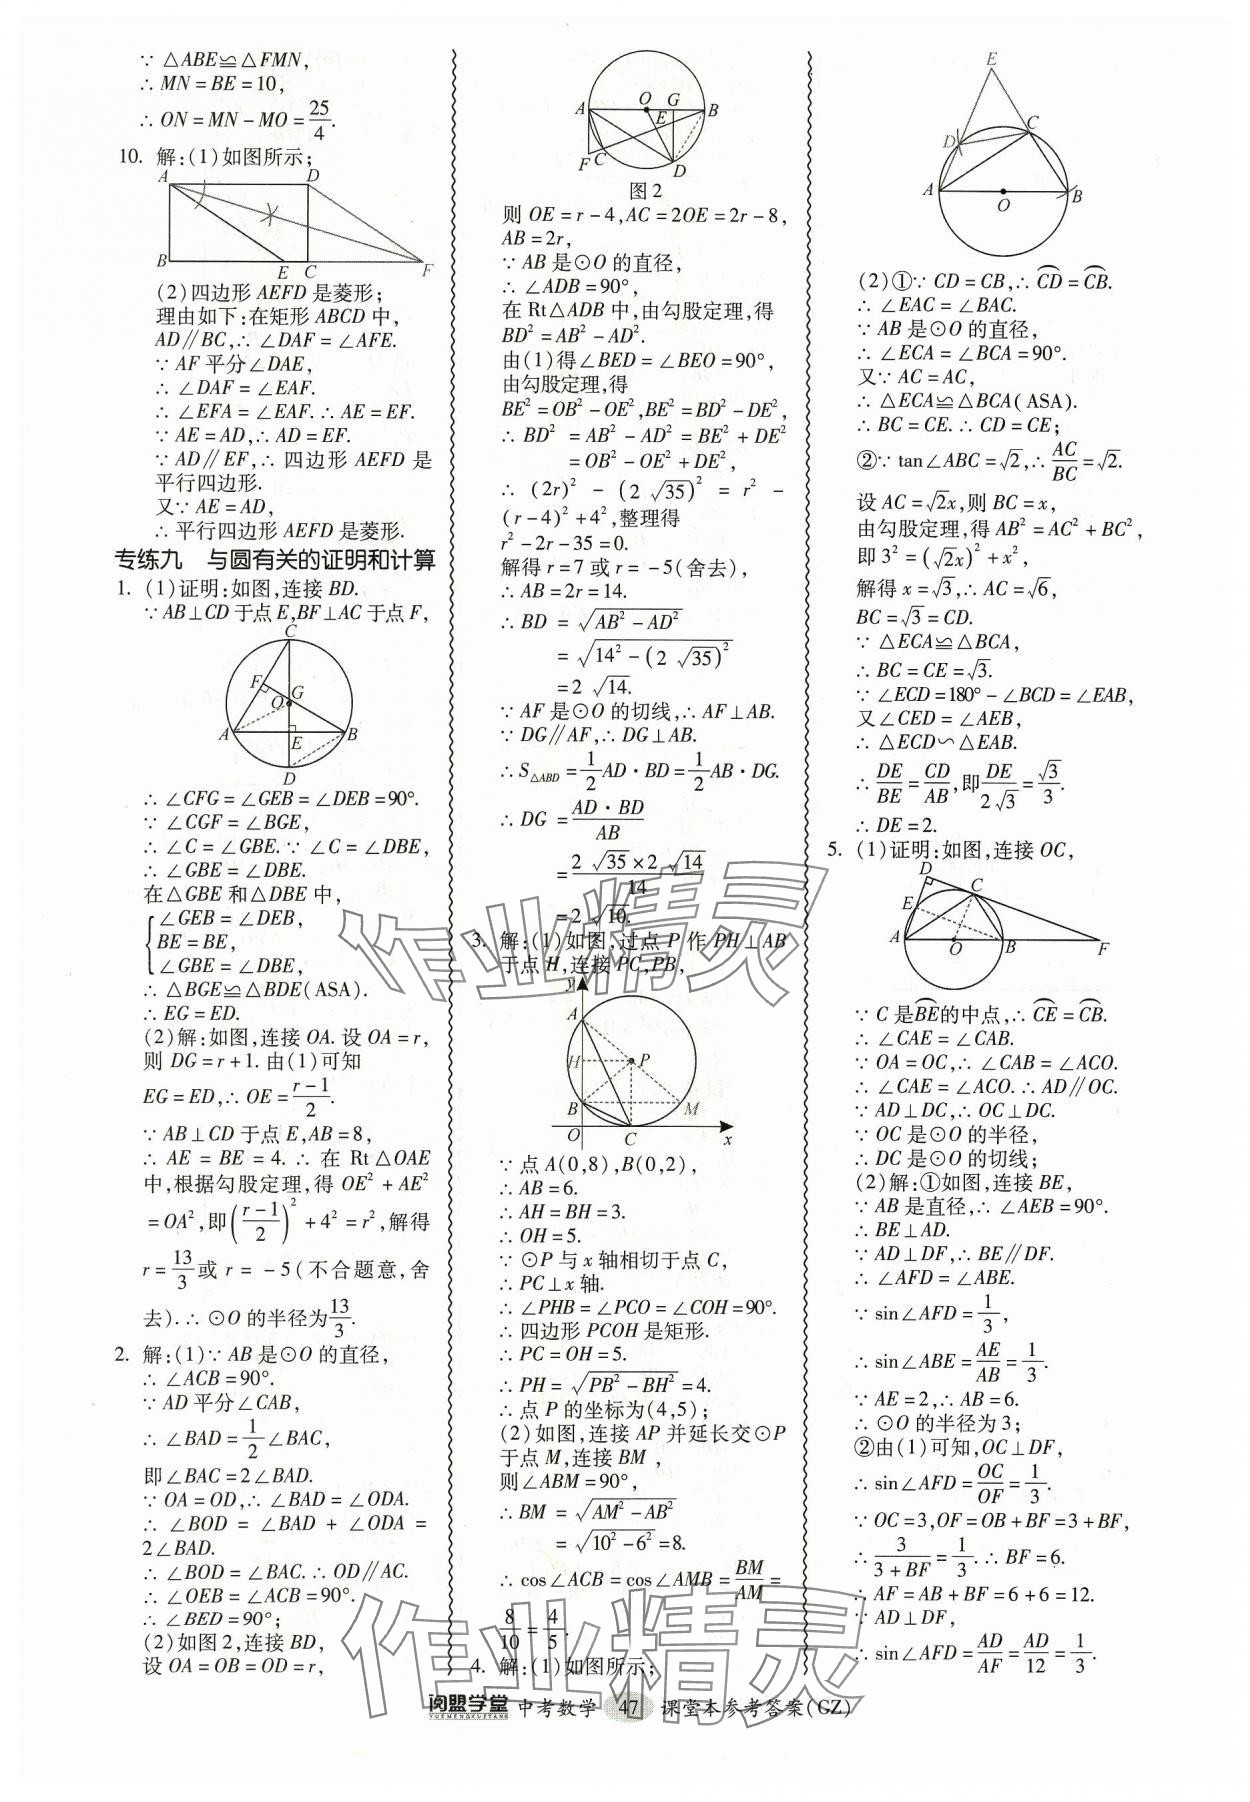 ∵ △ABE≌△FMN,
∴ MN=BE=10,
∴ ON=MN-MO=25/4.
10. 解:(1)如图所示;
A D
B E C F
(2)四边形 AEFD 是菱形;
理由如下:在矩形 ABCD 中,
AD∥BC,∴ ∠DAF=∠AFE.
∵ AF 平分∠DAE,
∴ ∠DAF=∠EAF.
∴ ∠EFA=∠EAF. ∴ AE=EF.
∵ AE=AD,∴ AD=EF.
∵ AD∥EF,∴ 四边形 AEFD 是
平行四边形.
又∵ AE=AD,
∴ 平行四边形 AEFD 是菱形.
专练九 与圆有关的证明和计算
1. (1)证明:如图,连接 BD.
∵ AB⊥CD 于点 E,BF⊥AC 于点 F,
C
F G
O
A E B
D
∴ ∠CFG=∠GEB=∠DEB=90°.
∵ ∠CGF=∠BGE,
∴ ∠C=∠GBE. ∵ ∠C=∠DBE,
∴ ∠GBE=∠DBE.
在△GBE 和△DBE 中,
∠GEB=∠DEB,
BE=BE,
∠GBE=∠DBE,
∴ △BGE≌△BDE(ASA).
∴ EG=ED.
(2)解:如图,连接 OA. 设 OA=r,
则 DG=r+1. 由(1)可知
EG=ED,∴ OE=(r-1)/2.
∵ AB⊥CD 于点 E,AB=8,
∴ AE=BE=4. ∴ 在 Rt△OAE
中,根据勾股定理,得 OE²+AE²
=OA²,即((r-1)/2)²+4²=r²,解得
r=13/3或 r=-5(不合题意,舍
去).∴ ⊙O 的半径为13/3.
2. 解:(1)∵ AB 是⊙O 的直径,
∴ ∠ACB=90°.
∵ AD 平分∠CAB,
∴ ∠BAD=1/2∠BAC,
即∠BAC=2∠BAD.
∵ OA=OD,∴ ∠BAD=∠ODA.
∴ ∠BOD=∠BAD+∠ODA=
2∠BAD.
∴ ∠BOD=∠BAC. ∴ OD∥AC.
∴ ∠OEB=∠ACB=90°.
∴ ∠BED=90°;
(2)如图 2,连接 BD,
设 OA=OB=OD=r,
A O G B
E
F C D
图 2
则 OE=r-4,AC=2OE=2r-8,
AB=2r,
∵ AB 是⊙O 的直径,
∴ ∠ADB=90°,
在 Rt△ADB 中,由勾股定理,得
BD²=AB²-AD².
由(1)得∠BED=∠BEO=90°,
由勾股定理,得
BE²=OB²-OE²,BE²=BD²-DE²,
∴ BD²=AB²-AD²=BE²+DE²
=OB²-OE²+DE²,
∴ (2r)²-(2√35)²=r²-
(r-4)²+4²,整理得
r²-2r-35=0.
解得 r=7 或 r=-5(舍去),
∴ AB=2r=14.
∴ BD=√(AB²-AD²)
=√(14²-(2√35)²)
=2√14.
∵ AF 是⊙O 的切线,∴ AF⊥AB.
∵ DG∥AF,∴ DG⊥AB.
∴ S△ABD=1/2AD·BD=1/2AB·DG.
∴ DG=(AD·BD)/AB
=(2√35×2√14)/14
=2√10.
3. 解:(1)如图,过点 P 作 PH⊥AB
于点 H,连接 PC,PB,
y
A
H P
B M
O C x
∵ 点 A(0,8),B(0,2),
∴ AB=6.
∴ AH=BH=3.
∴ OH=5.
∵ ⊙P 与 x 轴相切于点 C,
∴ PC⊥x 轴.
∴ ∠PHB=∠PCO=∠COH=90°.
∴ 四边形 PCOH 是矩形.
∴ PC=OH=5.
∴ PH=√(PB²-BH²)=4.
∴ 点 P 的坐标为(4,5);
(2)如图,连接 AP 并延长交⊙P
于点 M,连接 BM,
则∠ABM=90°,
∴ BM=√(AM²-AB²)
=√(10²-6²)=8.
∴ cos∠ACB=cos∠AMB=BM/AM=
8/10=4/5.
4. 解:(1)如图所示;
E
D C
A O B
(2)①∵ CD=CB,∴ CD=CB.
∴ ∠EAC=∠BAC.
∵ AB 是⊙O 的直径,
∴ ∠ECA=∠BCA=90°.
又∵ AC=AC,
∴ △ECA≌△BCA(ASA).
∴ BC=CE. ∴ CD=CE;
②∵ tan∠ABC=√2,∴ AC/BC=√2.
设 AC=√2x,则 BC=x,
由勾股定理,得 AB²=AC²+BC²,
即 3²=(√2x)²+x²,
解得 x=√3,∴ AC=√6,
BC=√3=CD.
∵ △ECA≌△BCA,
∴ BC=CE=√3.
∵ ∠ECD=180°-∠BCD=∠EAB,
又∠CED=∠AEB,
∴ △ECD∽△EAB.
∴ DE/BE=CD/AB,即DE/2√3=√3/3.
∴ DE=2.
5. (1)证明:如图,连接 OC,
D C
E
A O B F
∵ C 是BE的中点,∴ CE=CB.
∴ ∠CAE=∠CAB.
∵ OA=OC,∴ ∠CAB=∠ACO.
∴ ∠CAE=∠ACO. ∴ AD∥OC.
∵ AD⊥DC,∴ OC⊥DC.
∵ OC 是⊙O 的半径,
∴ DC 是⊙O 的切线;
(2)解:①如图,连接 BE,
∵ AB 是直径,∴ ∠AEB=90°.
∴ BE⊥AD.
∵ AD⊥DF,∴ BE∥DF.
∴ ∠AFD=∠ABE.
∵ sin∠AFD=1/3,
∴ sin∠ABE=AE/AB=1/3.
∵ AE=2,∴ AB=6.
∴ ⊙O 的半径为 3;
②由(1)可知,OC⊥DF,
∴ sin∠AFD=OC/OF=1/3.
∵ OC=3,OF=OB+BF=3+BF,
∴ 3/(3+BF)=1/3. ∴ BF=6.
∴ AF=AB+BF=6+6=12.
∵ AD⊥DF,
∴ sin∠AFD=AD/AF=AD/12=1/3.
作业精灵
作业精灵
阅盟学堂 中考数学 47 课堂本参考答案(GZ)
YUEMENGXUETANG